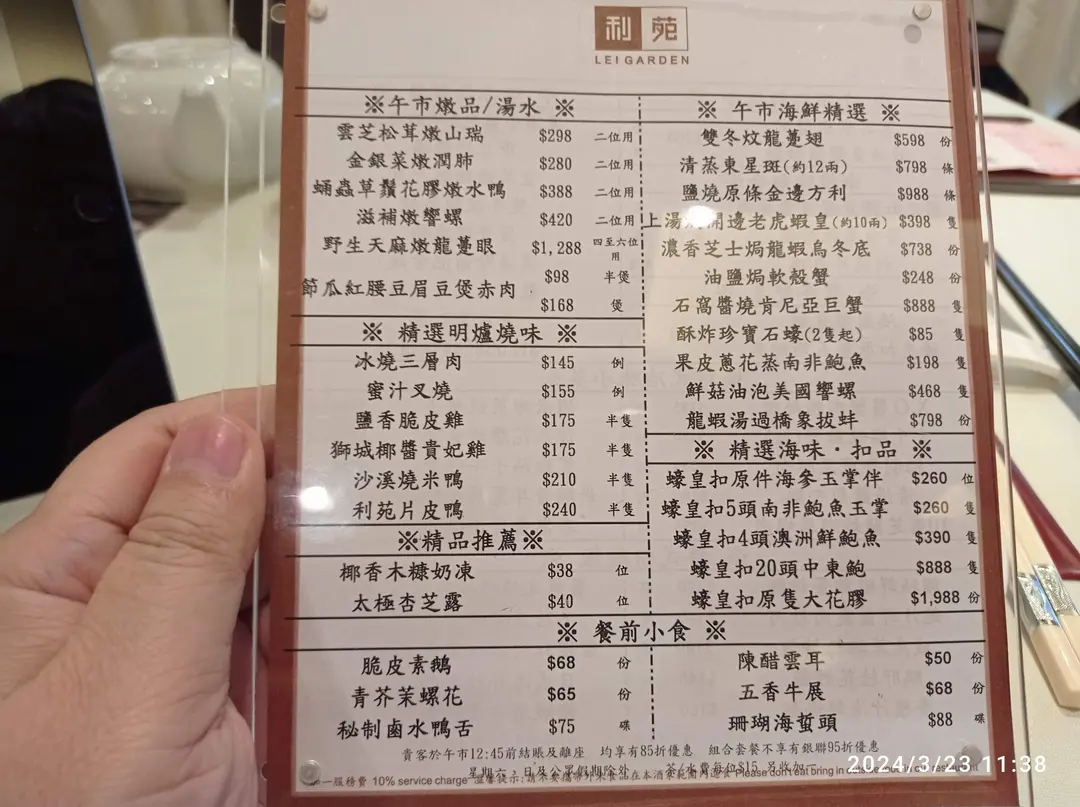 利苑
LEI GARDEN
※午市燉品/湯水 ※
雲芝松茸燉山瑞 $298 二位用
金銀菜燉潤肺 $280 二位用
蛹蟲草鬚花膠燉水鴨 $388 二位用
滋補燉響螺 $420 二位用
野生天麻燉龍躉眼 $1,288 四至六位用
節瓜紅腰豆眉豆煲赤肉 $98 半煲
$168 煲
※ 精選明爐燒味 ※
冰燒三層肉 $145 例
蜜汁叉燒 $155 例
鹽香脆皮雞 $175 半隻
獅城椰醬貴妃雞 $175 半隻
沙溪燒米鴨 $210 半隻
利苑片皮鴨 $240 半隻
※精品推薦※
椰香木糠奶凍 $38 位
太極杏芝露 $40 位
※ 午市海鮮精選 ※
雙冬炆龍躉翅 $598 份
清蒸東星斑(約12兩) $798 條
鹽燒原條金邊方利 $988 條
上湯 開邊老虎蝦皇(約10兩) $398 隻
濃香芝士焗龍蝦烏冬底 $738 份
油鹽焗軟殼蟹 $248 份
石窩醬燒肯尼亞巨蟹 $888 隻
酥炸珍寶石蠔(2隻起) $85 隻
果皮蔥花蒸南非鮑魚 $198 隻
鮮菇油泡美國響螺 $468 隻
龍蝦湯過橋象拔蚌 $798 份
※ 精選海味·扣品 ※
蠔皇扣原件海參玉掌伴 $260 位
蠔皇扣5頭南非鮑魚玉掌 $260 隻
蠔皇扣4頭澳洲鮮鮑魚 $390 隻
蠔皇扣20頭中東鮑 $888 隻
蠔皇扣原隻大花膠 $1,988 份
※ 餐前小食 ※
脆皮素鵝 $68 份
青芥茉螺花 $65 份
秘制鹵水鴨舌 $75 碟
陳醋雲耳 $50 份
五香牛展 $68 份
珊瑚海蜇頭 $88 碟
貴客於午市12:45前結賬及離座 均享有85折優惠 組合套餐不享有銀聯95折優惠
星期六,日及公眾假期除外 茶/水費每位$15 另收加一
加一服務費 10% service charge 溫馨提示:請不要攜帶外來食品在本酒家範圍內進食 Please don't eat bring in outside
2024/3/23 11:38